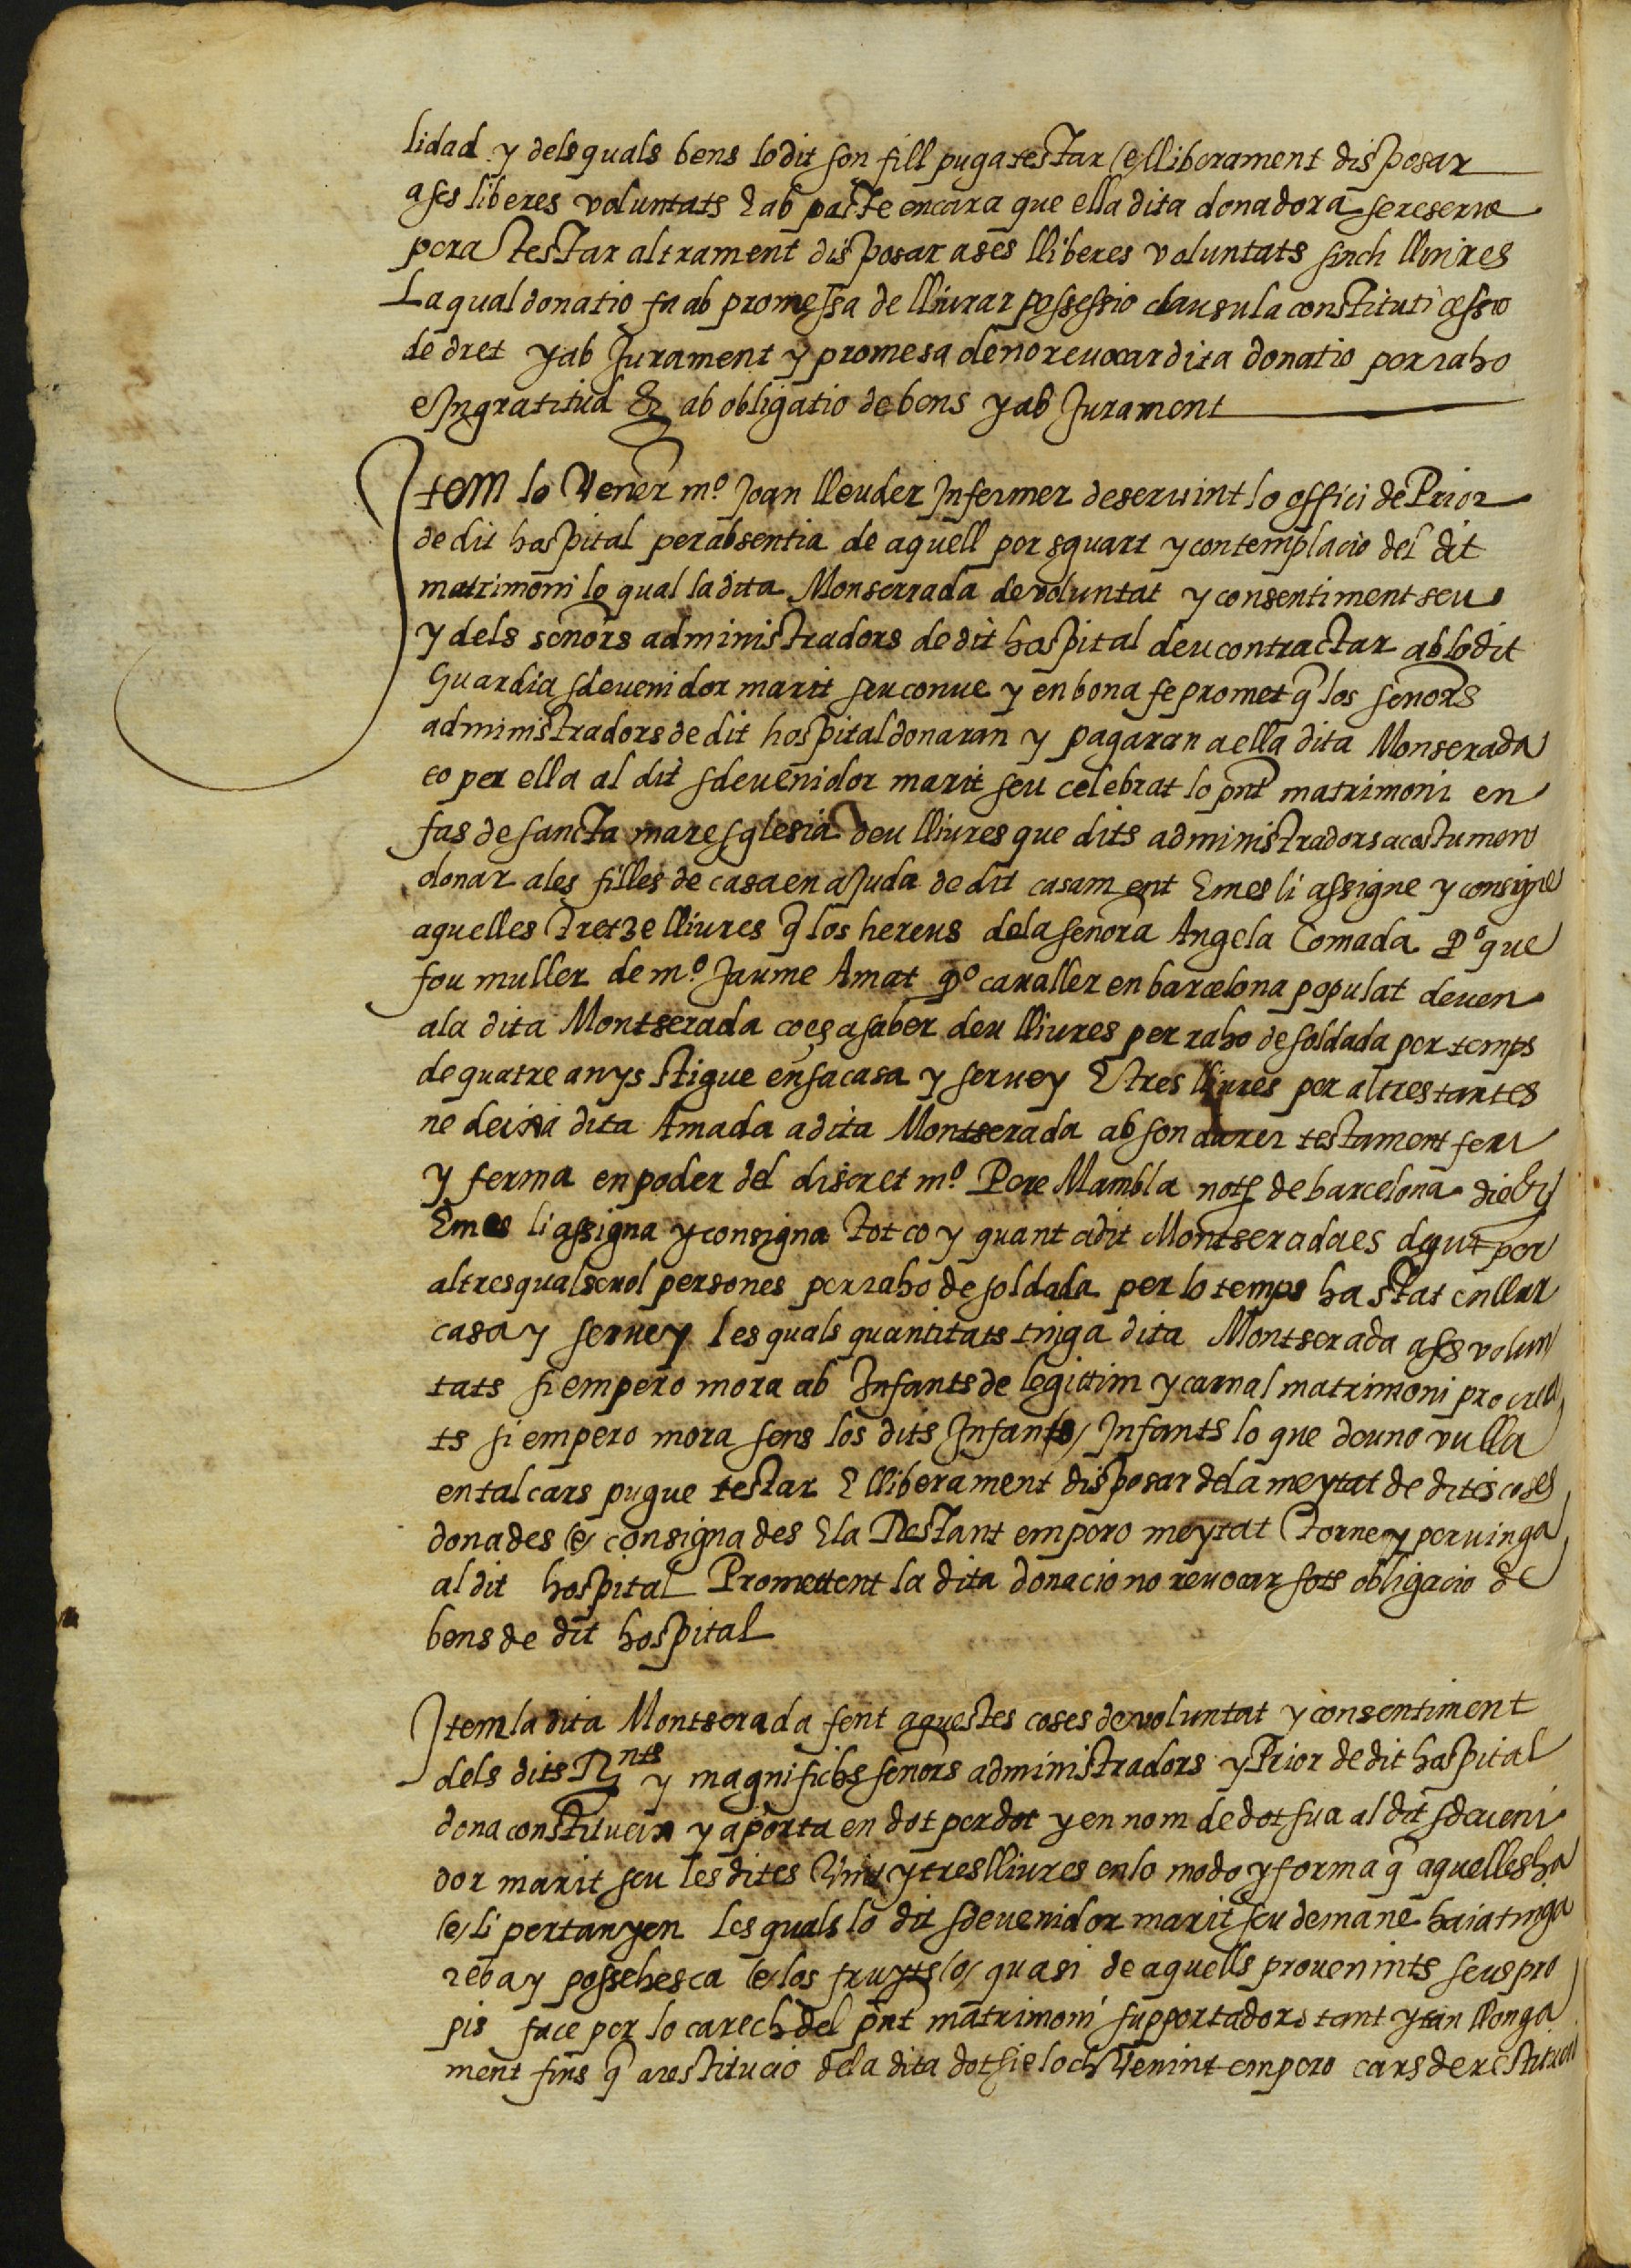 lidad y dels quals bens lo dit son fill puga testar (e) lliberament disposar
a ses liberes voluntats E ab pacte encara que ella dita donadora se reserve
pera testar altrament disposar a ses lliberes voluntats sinch lliures
La qual donatio fa ab promessa de lliurar possessio clausula constituti cessio
de dret y ab Jurament y promesa de no revocar dita donatio per raho
e Ingratitud &c ab obligatio de bens y ab Jurament
Item lo Vener m.º Joan lleuder Infermer deservint lo offici de Prior
de dit hospital per absentia de aquell per sguart y contemplacio del dit
matrimoni lo qual la dita Monserrada de voluntat y consentiment seu
y dels señors administradors de dit hospital deu contractar ab lo dit
Guardia sdevenidor marit seu conve y en bona fe promet q̃ los señors
administradors de dit hospital donaran y pagaran a ella dita Monserada
eo per ella al dit sdevenidor marit seu celebrat lo pñt matrimoni en
fas de sancta mare sglesia deu lliures que dits administradors acostumen
donar a les filles de casa en ajuda de dit casament E mes li assigne y consigne
aquelles tretze lliures q̃ los hereus de la señora Angela Comada qº que
fou muller de m.º Jaume Amat qº cavaller en barcelona populat deven
a la dita Montserada co es a saber deu lliures per raho de soldada per temps
de quatre anys stigue en sa casa y servey E tres lliures per altres tantes
ne deixa dita Amada a dita Montserada ab son darrer testament feu
y ferma en poder del discret m.º Pere Mambla not de barcelona die &c
E mes li assigna y consigna tot co y quant a dit Montserada es degut per
altres qualsevol persones per raho de soldada per lo temps ha stat en llur
casa y servey les quals quantitats tinga dita Montserada a ses volun
tats si empero mora ab Infants de legittim y carnal matrimoni procrea
ts si empero mora sens los dits Infants (o) Infants lo que deu no vulla
en tal cars pugue testar E lliberament disposar de la meytat de dites coses
donades (e) consignades E la Restant empero meytat torne y pervinga
al dit hospital Promettent la dita donacio no revocar sots obligacio de
bens de dit hospital
Item la dita Montserada fent aquestes coses de voluntat y consentiment
dels dits R.nts y magnifichs señors administradors y Prior de dit hospital
dona constitueix y aporta en dot per dot y en nom de dot sua al dit sdeveni
dor marit seu les dites vint y tres lliures en lo modo y forma q̃ aquelles ha
(e) li pertanyen Les quals lo dit sdevenidor marit seu demane haia tinga
reba y possehesca (e) los fruyts (o) quasi de aquells provenints seus pro
pis face per lo carech del pñt matrimoni supportador tant y tan llonga
ment fins q̃ a restitucio de la dita dot sie loch Venint empero cars de restitucio